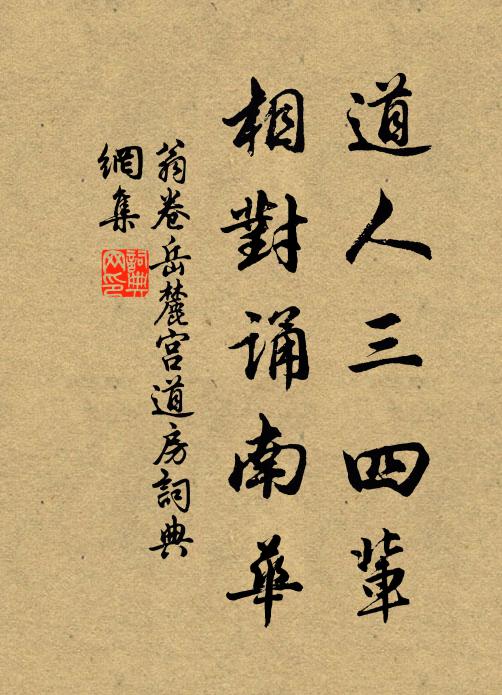 道人三四輩
相對誦南華
翁卷岳麓宮道房詞典
網集
詞典
网印